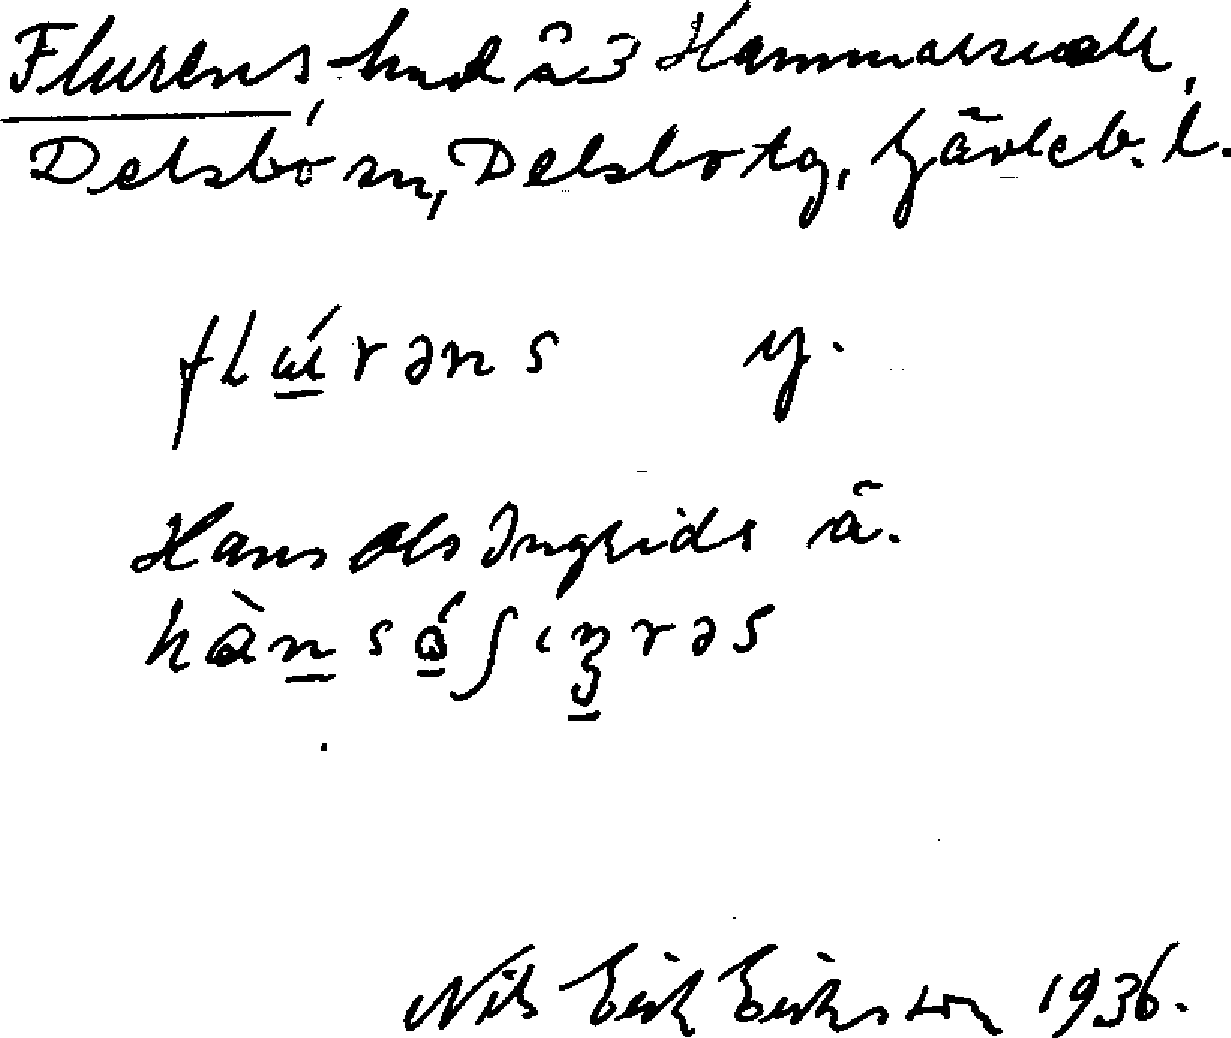 Flurens, hmd å 3 Hammarsvall,
Delsbo sn, Delsbo tg, Gävleb. l.
flɯ́rəns y.
Hans Ols Ingrids ä.
hànsɑ́ʃıŋrəs
Nils Erik Eriksson 1936.